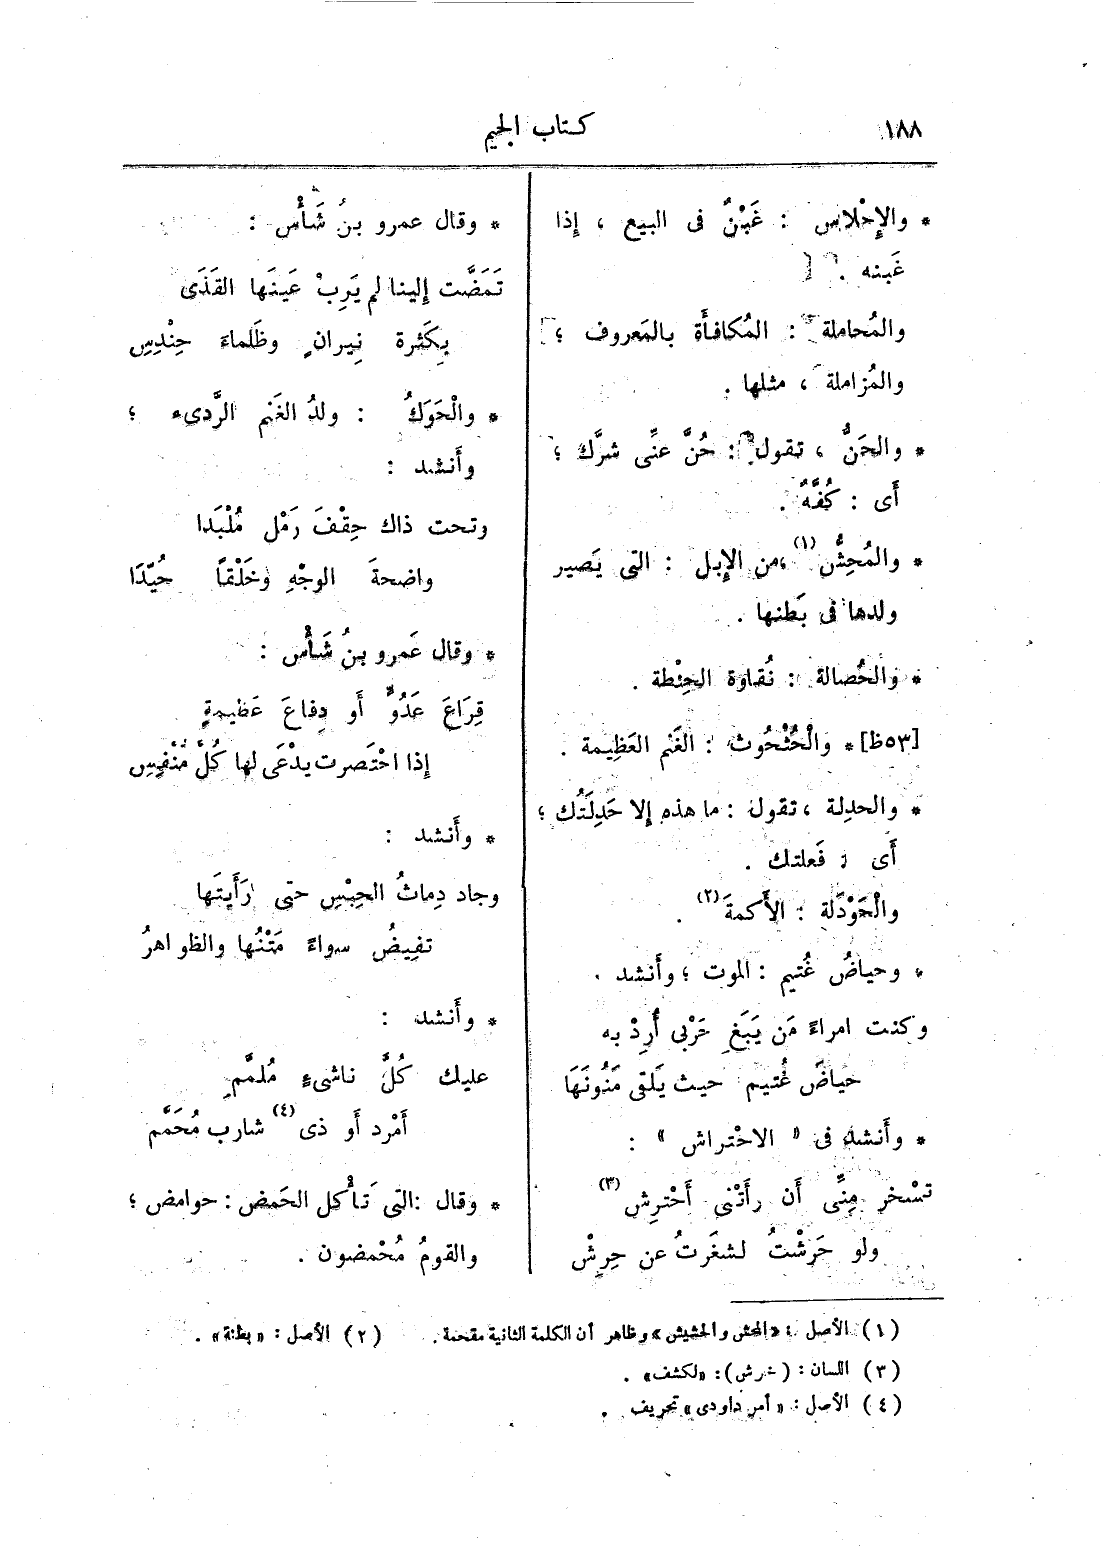 ١٨٨
كتاب الجيم
* والإِحْلاس : غَبْنٌ فى البيع ، إذا
غَبنه .
والمُحاملة : المُكافأَة بالمَعروف ؛
والمُزاملة ، مثلها .
* والحَنُّ ، تقول : حُنَّ عنِّى شرَّك ؛
أَى : كُفَّهُ .
* والمُحِشُّ (١) ،من الإِبل : التى يَصير
ولدها فى بَطنها .
* والحُصالة : نُقاوة الحِنْطة .
[٥٣ظ] * والْحُثْحُوث : الغَنم العَظِيمة .
* والحدِلة ، تقول : ما هذه إلا حَدِلَتُك ؛
أَى : فَعلتك .
والْحَوْدَلة : الأَكمةَ (٢) .
* وحياضُ غُتيم : الموت ؛ وأَنشد .
وكنت امراءً مَن يَبَغِ حَرْبى أُرِدْ به
حياضَ غُتيم حيث يَلقى مَنُونَهَا
* وأَنشد فى « الاخْتراش » :
تسْخر مِنِّى أَن رأَتْنى أَخْترِش (٣)
ولو حَرَشْتُ لشغَرتُ عن حِرِشْ
* وقال عمرو بنُ شَأْس :
تَمَضَّت إلينا لم يَرِبْ عَينَها القَذَى
بِكَثرة نِيران وظَلماءَ حِنْدِسِ
* والْحَوَكُ : ولدُ الغَنم الرَّدىء ؛
وأَنشد :
وتحت ذاك حِقْفَ رَمْل مُلْبَدا
واضحةَ الوجْهِ وخَلْقاً حُيّدَا
* وقال عَمرو بنُ شَأْس :
قِرَاعَ عَدُوٍّ أَو دِفاعَ عَظيمةٍ
إذا احْتَصرت يدْعَى لها كُلُّ مُنْفِسِ
* وأَنشد :
وجاد دِماثُ الحِبْسِ حتى رَأَيتَها
تفيضُ سواءً مَتْنُها والظواهرُ
* وأَنشد :
عليك كُلَّ ناشىءٍ مُلمَّمِ
أَمْرد أَو ذى (٤) شارب مُحَمَّم
* وقال :التى تَأْكل الحَمض : حوامض ؛
والقومُ مُحْمضون .
(١) الأصل : «المحش والحشيش» وظاهر أن الكلمة الثانية مقحمة . (٢) الأصل : «بطنة» .
(٣) اللسان : (خرش): «لكشف» .
(٤) الأصل : « أمر داودى» تحريف .